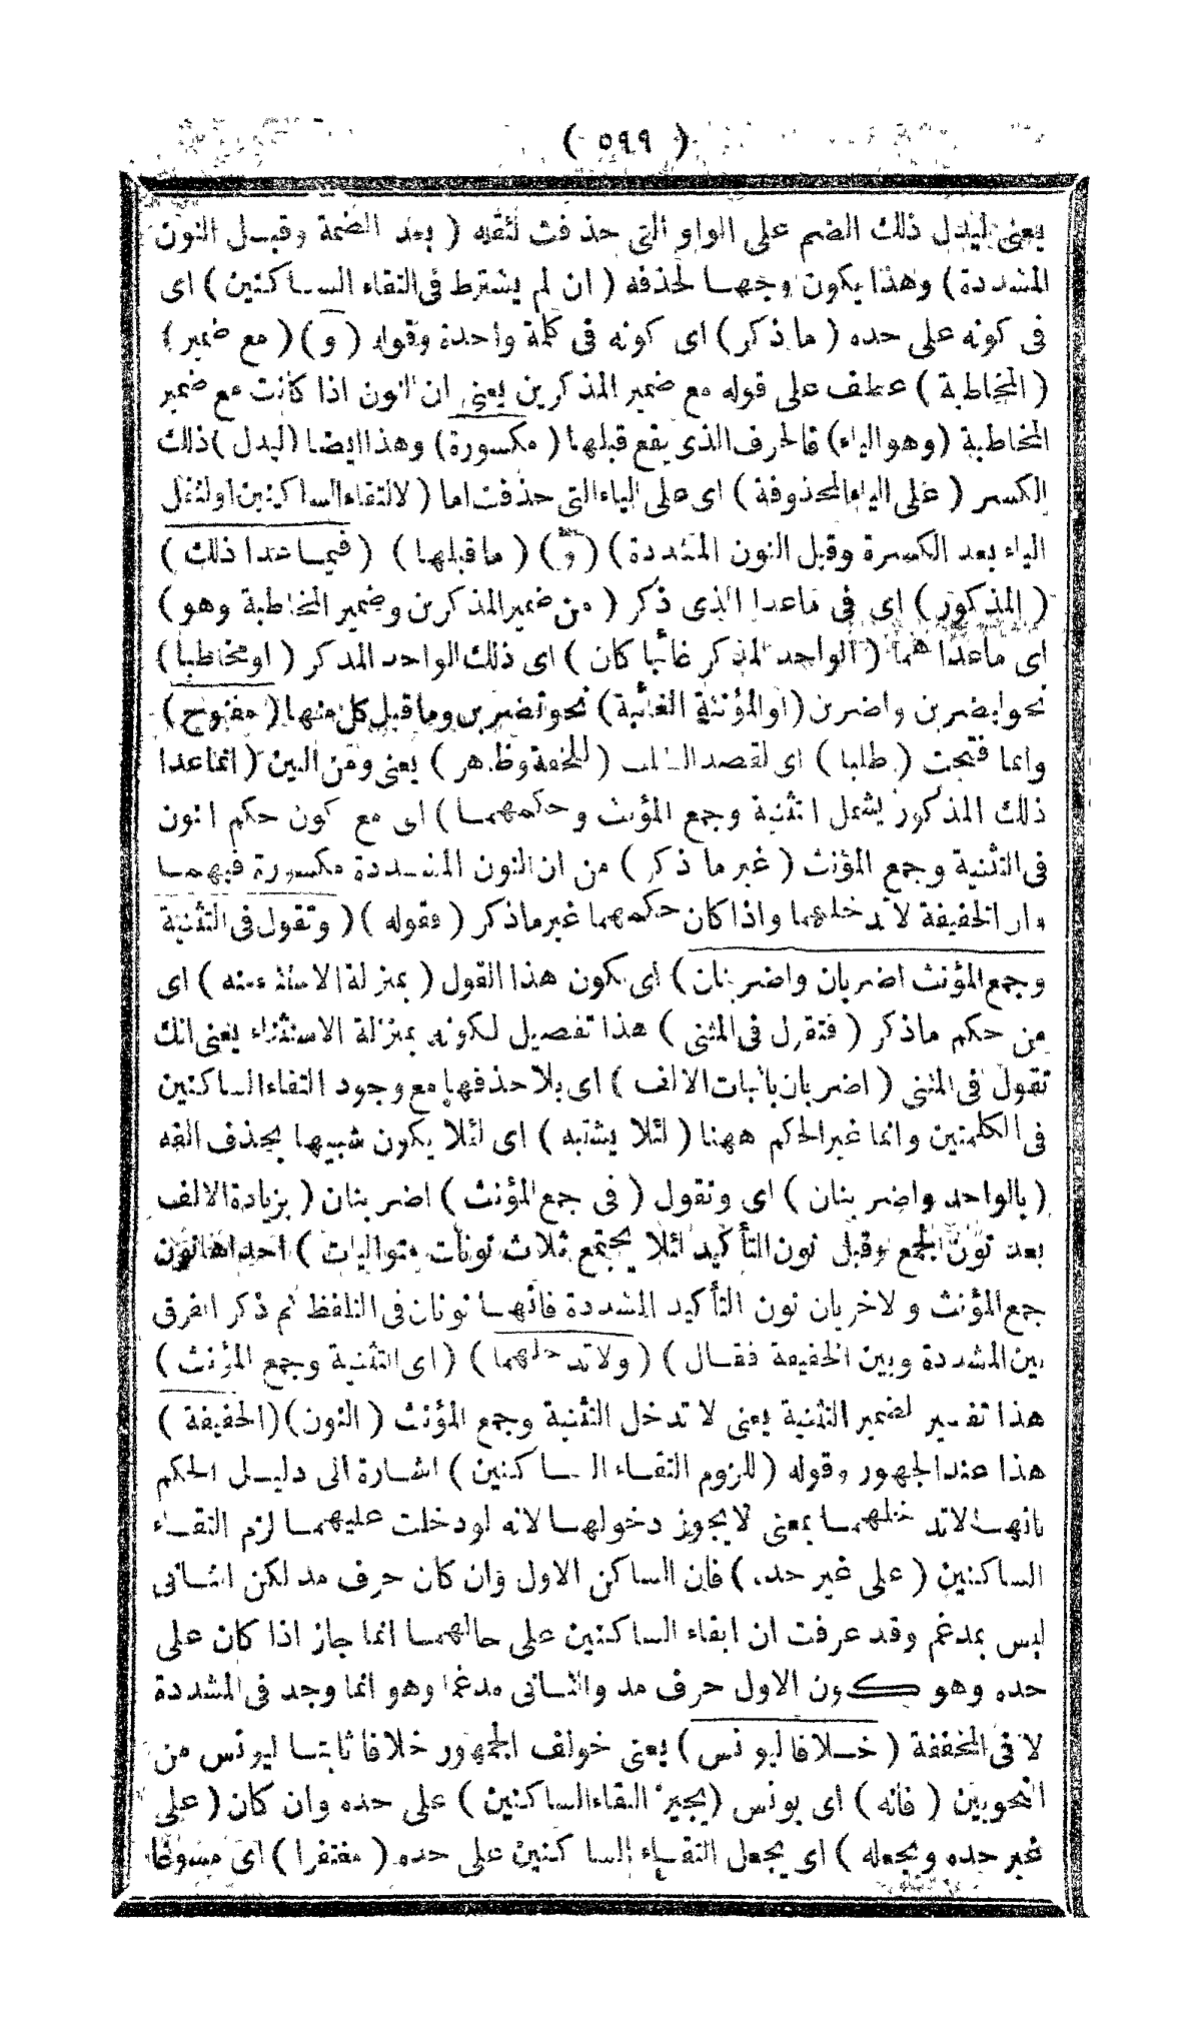 ( ٥٩٩ )
يعنى ليدل ذلك الضم على الواو التى حذفت لثقله ( بعد الضمة وقبل النون
المشددة ) وهذا يكون وجها لحذفه ( ان لم يشترط فى التقاء الساكنين ) اى
فى كونه على حده ( ما ذكر ) اى كونه فى كلمة واحدة وقوله ( و ) ( مع ضمير )
( المخاطبة ) عطف على قوله مع ضمير المذكرين يعنى ان النون اذا كانت مع ضمير
المخاطبة ( وهو الياء ) فالحرف الذى يقع قبلها ( مكسورة ) وهذا ايضا ( ليدل ) ذلك
الكسر ( على الياء المحذوفة ) اى على الياء التى حذفت اما ( لالتقاء الساكنين او لثقل
الياء بعد الكسرة وقبل النون المشددة ) ( و ) ( ما قبلها ) ( فيما عدا ذلك )
( المذكور ) اى فى ماعدا الذى ذكر ( من ضمير المذكرين وضمير المخاطبة وهو )
اى ماعدا هما ( الواحد المذكر غائبا كان ) اى ذلك الواحد المذكر ( او مخاطبا )
نحو ليضربن واضربن ( او المؤنثة الغائبة ) نحو لتضربن وما قبل كل منها ( مفتوح )
وانما فتحت ( طلبا ) اى لقصد الطلب ( للخفة وظاهر ) يعنى ومن البين ( ان ماعدا
ذلك المذكور يشمل التثنية وجمع المؤنث وحكمهما ) اى مع كون حكم النون
فى التثنية وجمع المؤنث ( غير ما ذكر ) من ان النون المشددة مكسورة فيهما
وان الخفيفة لا تدخلهما واذا كان حكمهما غير ماذكر ( فقوله ) ( وتقول فى التثنية
وجمع المؤنث اضربان واضربنان ) اى يكون هذا القول ( بمنزلة الاستثناء منه ) اى
من حكم ماذكر ( فتقول فى المثنى ) هذا تفصيل لكونه بمنزلة الاستثناء يعنى انك
تقول فى المثنى ( اضربان باثبات الالف ) اى بلا حذفها مع وجود التقاء الساكنين
فى الكلمتين وانما غير الحكم ههنا ( لئلا يشتبه ) اى لئلا يكون شبيها بحذف الفه
( بالواحد واضربنان ) اى وتقول ( فى جمع المؤنث ) اضربنان ( بزيادة الالف
بعد نون الجمع وقبل نون التأكيد لئلا يجتمع ثلاث نونات متواليات ) احداها نون
جمع المؤنث والاخريان نون التأكيد المشددة فانها نونان فى التلفظ ثم ذكر الفرق
بين المشددة وبين الخفيفة فقال ) ( ولا تدخلهما ) ( اى التثنية وجمع المؤنث )
هذا تفسير لضمير التثنية يعنى لا تدخل التثنية وجمع المؤنث ( النون ) ( الخفيفة )
هذا عند الجهور وقوله ( للزوم التقاء الساكنين ) اشارة الى دليل الحكم
بانها لاتدخلهما بمعنى لا يجوز دخولها لانه لو دخلت عليهما لزم التقاء
الساكنين ( على غير حده ) فان الساكن الاول وان كان حرف مد لكن الثانى
ليس بمدغم وقد عرفت ان ابقاء الساكنين على حالهما انما جاز اذا كان على
حده وهو كون الاول حرف مد والثانى مدغما وهو انما وجد فى المشددة
لا فى المخففة ( خلافا ليونس ) يعنى خولف الجمهور خلافا ثابتا ليونس من
النحويين ( فانه ) اى يونس ( يجيز التقاء الساكنين ) على حده وان كان ( على
غير حده ويجعله ) اى يجعل التقاء الساكنين على حده ( مغتفرا ) اى مسوغا